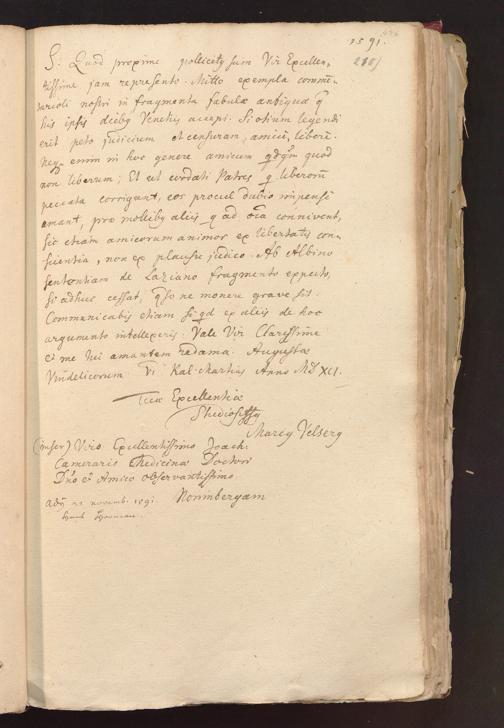 1591.
S: Quod proxime pollicitq sum Vir Excellen-
tissime jam repraesento. Mitto exempla comme-
tarioli nostri in fragmenta fabulae antiquae q
his ipsis dieбq Venetiis accepi. Si otium legendi
erit peto judicium et censuram, amicē, liberē.
Neq enim in hoc genere amicum qdqm quod
non liberum; Et ut cordati Patres q liberorū
peccata corrigunt, eos procul dubio impensē
amant, prae mollibq aliis q ad oīa connivent,
sic etiam amicorum animos ex libertatis con-
scientia, non ex plausu judico. Ab Albino
sententiam de Laziano fragmento expecto,
si adhuc cessat, qso ne monere grave sit.
Communicabis etiam si qd ex aliis de hoc
argumento intellexeris. Vale Vir Clarissime
et me tui amantem redama. Augustae
Vindelicorum VI Kal. Martias Anno MDXCI.
Tuae Excellentiae
Studiosissq
Marcq Velserq
(inser) Viro Excellentissimo Joach.
Camerario Medicinae Doctori
Dno et Amico observantissimo
Norimbergam
novemb. 1591